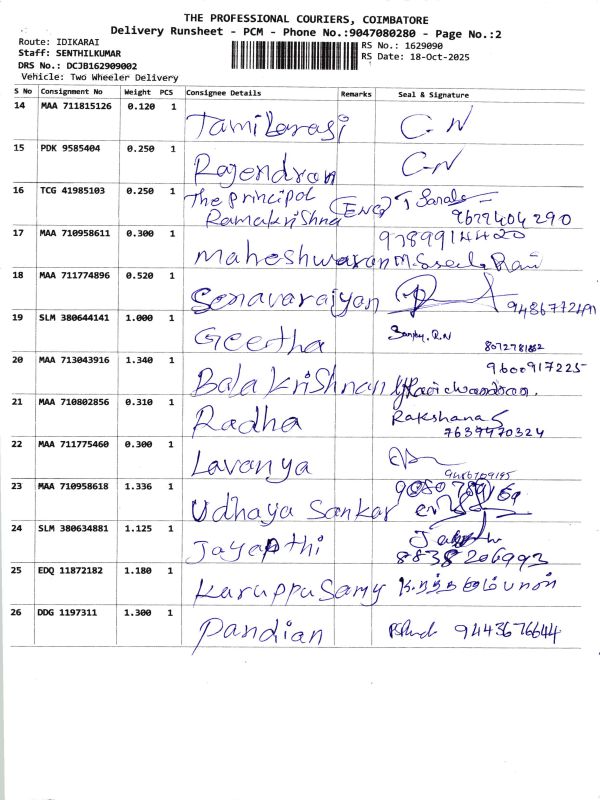 THE PROFESSIONAL COURIERS, COIMBATORE
Delivery Runsheet - PCM - Phone No.:9047080280 - Page No.:2
Route: IDIKARAI
Staff: SENTHILKUMAR
DRS No.: DCJB162909002
Vehicle: Two Wheeler Delivery
RS No.: 1629090
RS Date: 18-Oct-2025
S No Consignment No Weight PCS Consignee Details Remarks Seal & Signature
14 MAA 711815126 0.120 1 Tamilarasi C-N
15 PDK 9585404 0.250 1 Rajendran C-N
16 TCG 41985103 0.250 1 The principal Ramakrishna (ENG) T Sarala 9629404290
17 MAA 710958611 0.300 1 maheshwaran 9789914420 M. Rani
18 MAA 711774896 0.520 1 Sonavarajyan
19 SLM 380644141 1.000 1 Geetha
20 MAA 713043916 1.340 1 Bala Krishnan 9600917225
21 MAA 710802856 0.310 1 Radha Rakshana S 7639470324
22 MAA 711775460 0.300 1 Lavanya
23 MAA 710958618 1.336 1 Udhaya Sankar
24 SLM 380634881 1.125 1 Jayanthi 8838206993
25 EDQ 11872182 1.180 1 KaruppuSamy
26 DDG 1197311 1.300 1 Pandian 9443676644